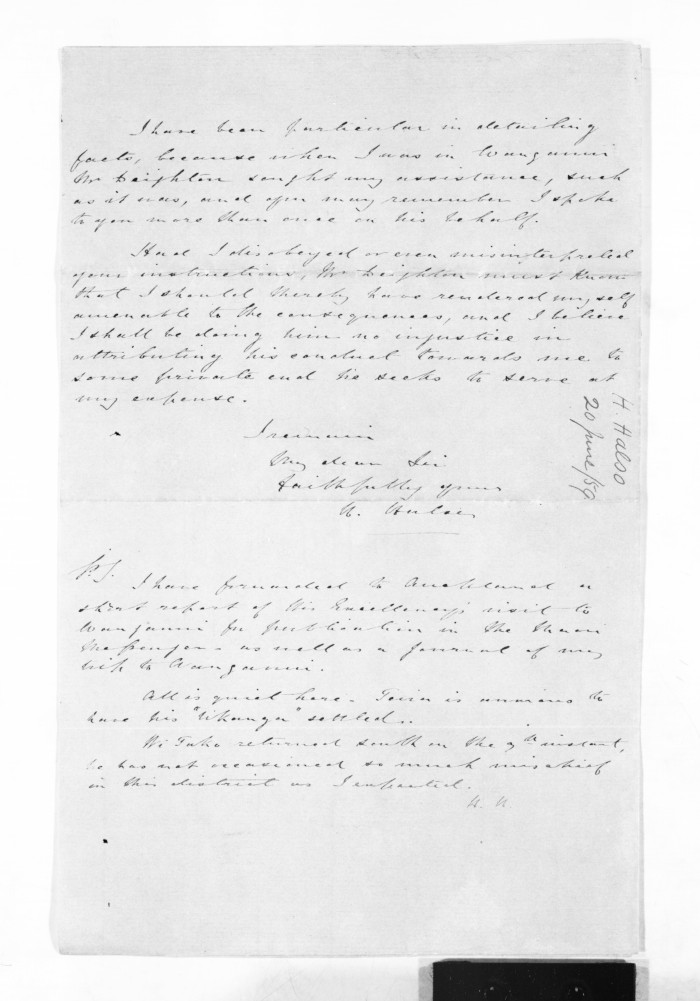 I have been particular in detailing
facts, because when I was in Wanganui
Mr Deighton sought my assistance, such
as it was, and you may remember I spoke
to you more than once on his behalf.
Had I disobeyed or even misinterpreted
your instructions, Mr Deighton must know
that I should thereby have rendered myself
amenable to the consequences, and I believe
I shall be doing him no injustice in
attributing his conduct towards me to
some private end he seeks to serve at
my expense.
I remain
My dear Sir
Faithfully yours
H. Halse
H. Halse
20 June/59
P.S. I have forwarded to Auckland a
short report of His Excellency's visit to
Wanganui for publication in the Maori
Messenger as well as a Journal of my
trip to Wanganui.
All is quiet here. is anxious to
have his "tikanga" settled.
Wi Tako returned south on the instant,
he has not occasioned so much mischief
in this district as I expected.
H. H.